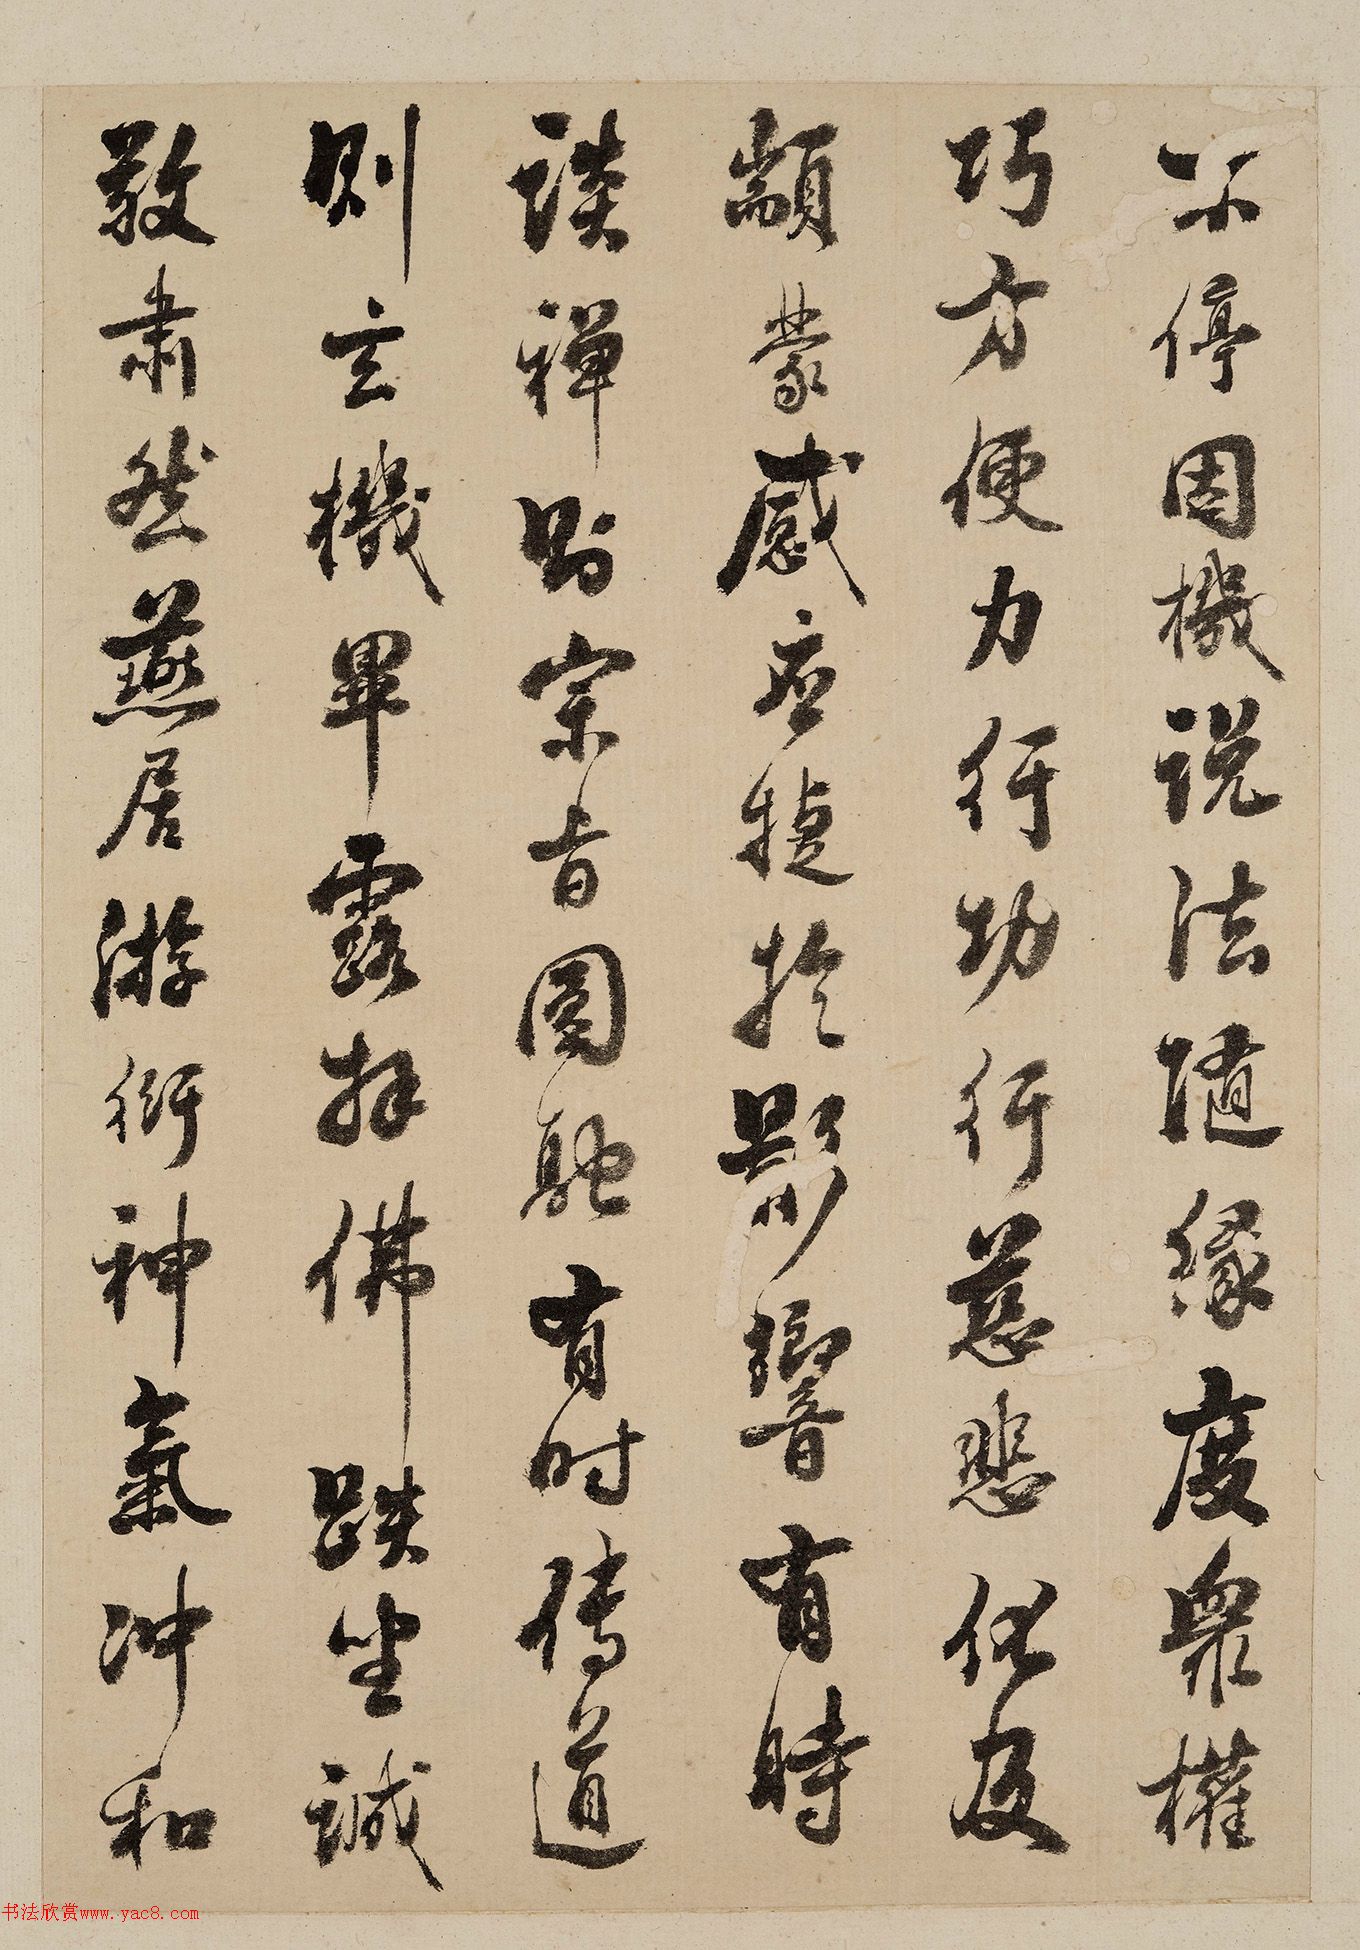 不停因機説法随縁度衆權
巧方便力行功行慈悲化及
顓蒙感应捷於影響有時
談禅則宗旨圓融有时传道
則玄機畢露拜佛趺坐誠
敬肅然燕居游衍神氣冲和
书法欣赏www.yac8.com